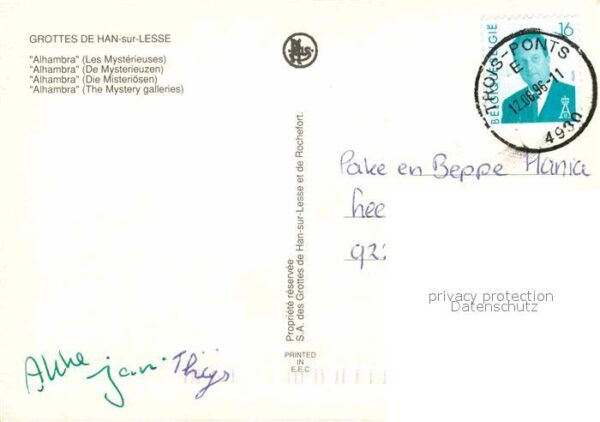 GROTTES DE HAN-sur-LESSE
"Alhambra" (Les Mystérieuses)
"Alhambra" (De Mysterieuzen)
"Alhambra" (Die Misteriösen)
"Alhambra" (The Mystery galleries)
16
BELGIQUE-BELGIË
TROIS-PONTS
E
12.06.96-11
4980
Pake en Beppe Hania
hee
92
privacy protection
Datenschutz
Propriété réservée
S.A. des Grottes de Han-sur-Lesse et de Rochefort.
PRINTED
IN
E.E.C
Anke jan Thijs